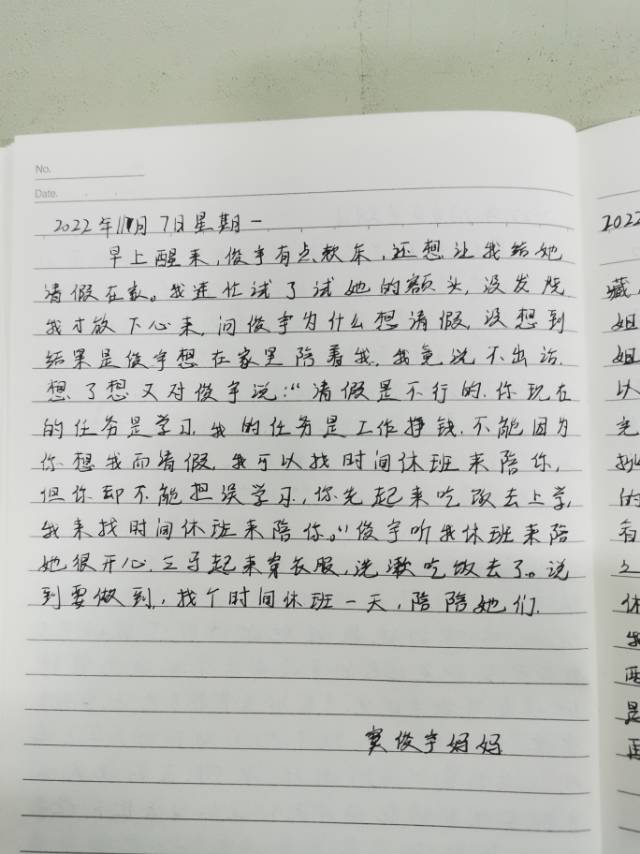 No.
Date.
2022年11月7日星期一
早上醒来,俊宇有点软来,还想让我给她
请假在家。我连忙试了试她的额头,没发烧
我才放下心来,问俊宇为什么想请假,没想到
结果是俊宇想在家里陪着我,我竟说不出话.
想了想又对俊宇说:“请假是不行的.你现在
的任务是学习.我的任务是工作挣钱.不能因为
你想我而请假.我可以找时间休班来陪你,
但你却不能担误学习,你先起来吃饭去上学,
我来找时间休班来陪你。”俊宇听我休班来陪
她很开心.立马起来穿衣服,洗漱吃饭去了。说
到要做到,找个时间休班一天,陪陪她们.
俊宇妈妈
2022
藏
姐
姐
以
完
的
有
之
休
两
是
再